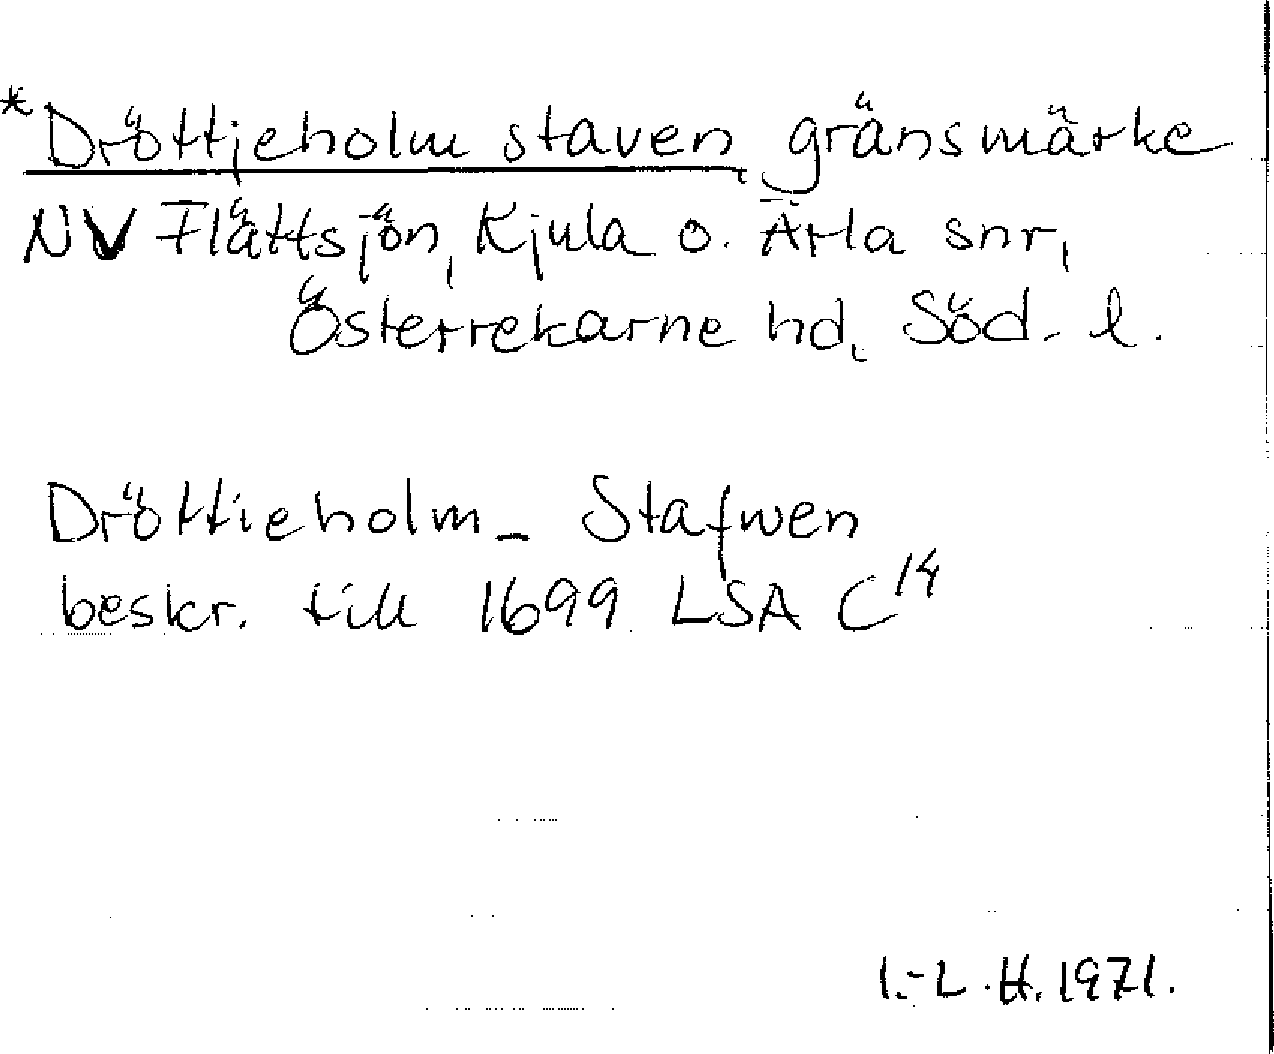 *Dröttjeholm staven, gränsmärke
NV Flättsjön, Kjula o. Ärla snr,
Österrekarne hd, Söd. l.
Dröttieholm_ Stafwen
beskr. till 1699 LSA C 14
I.-L.H. 1971.